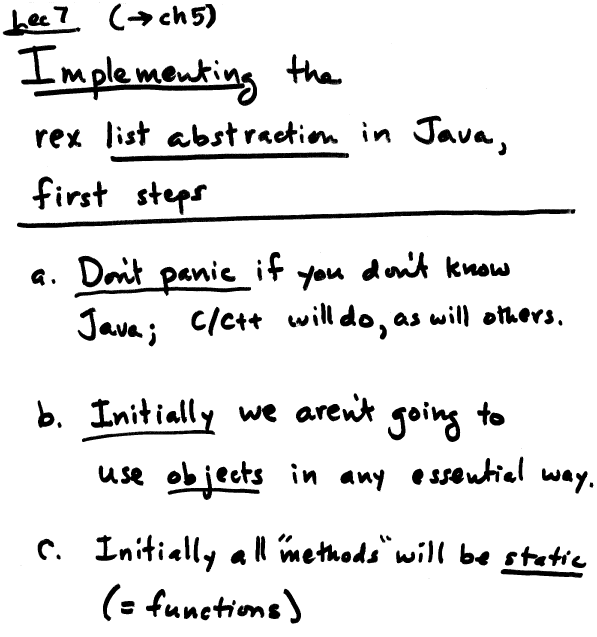 Lec 7 (→ ch 5)
Implementing the
rex list abstraction in Java,
first steps
a. Don't panic if you don't know
Java; C/C++ will do, as will others.
b. Initially we aren't going to
use objects in any essential way.
c. Initially all "methods" will be static
(= functions)